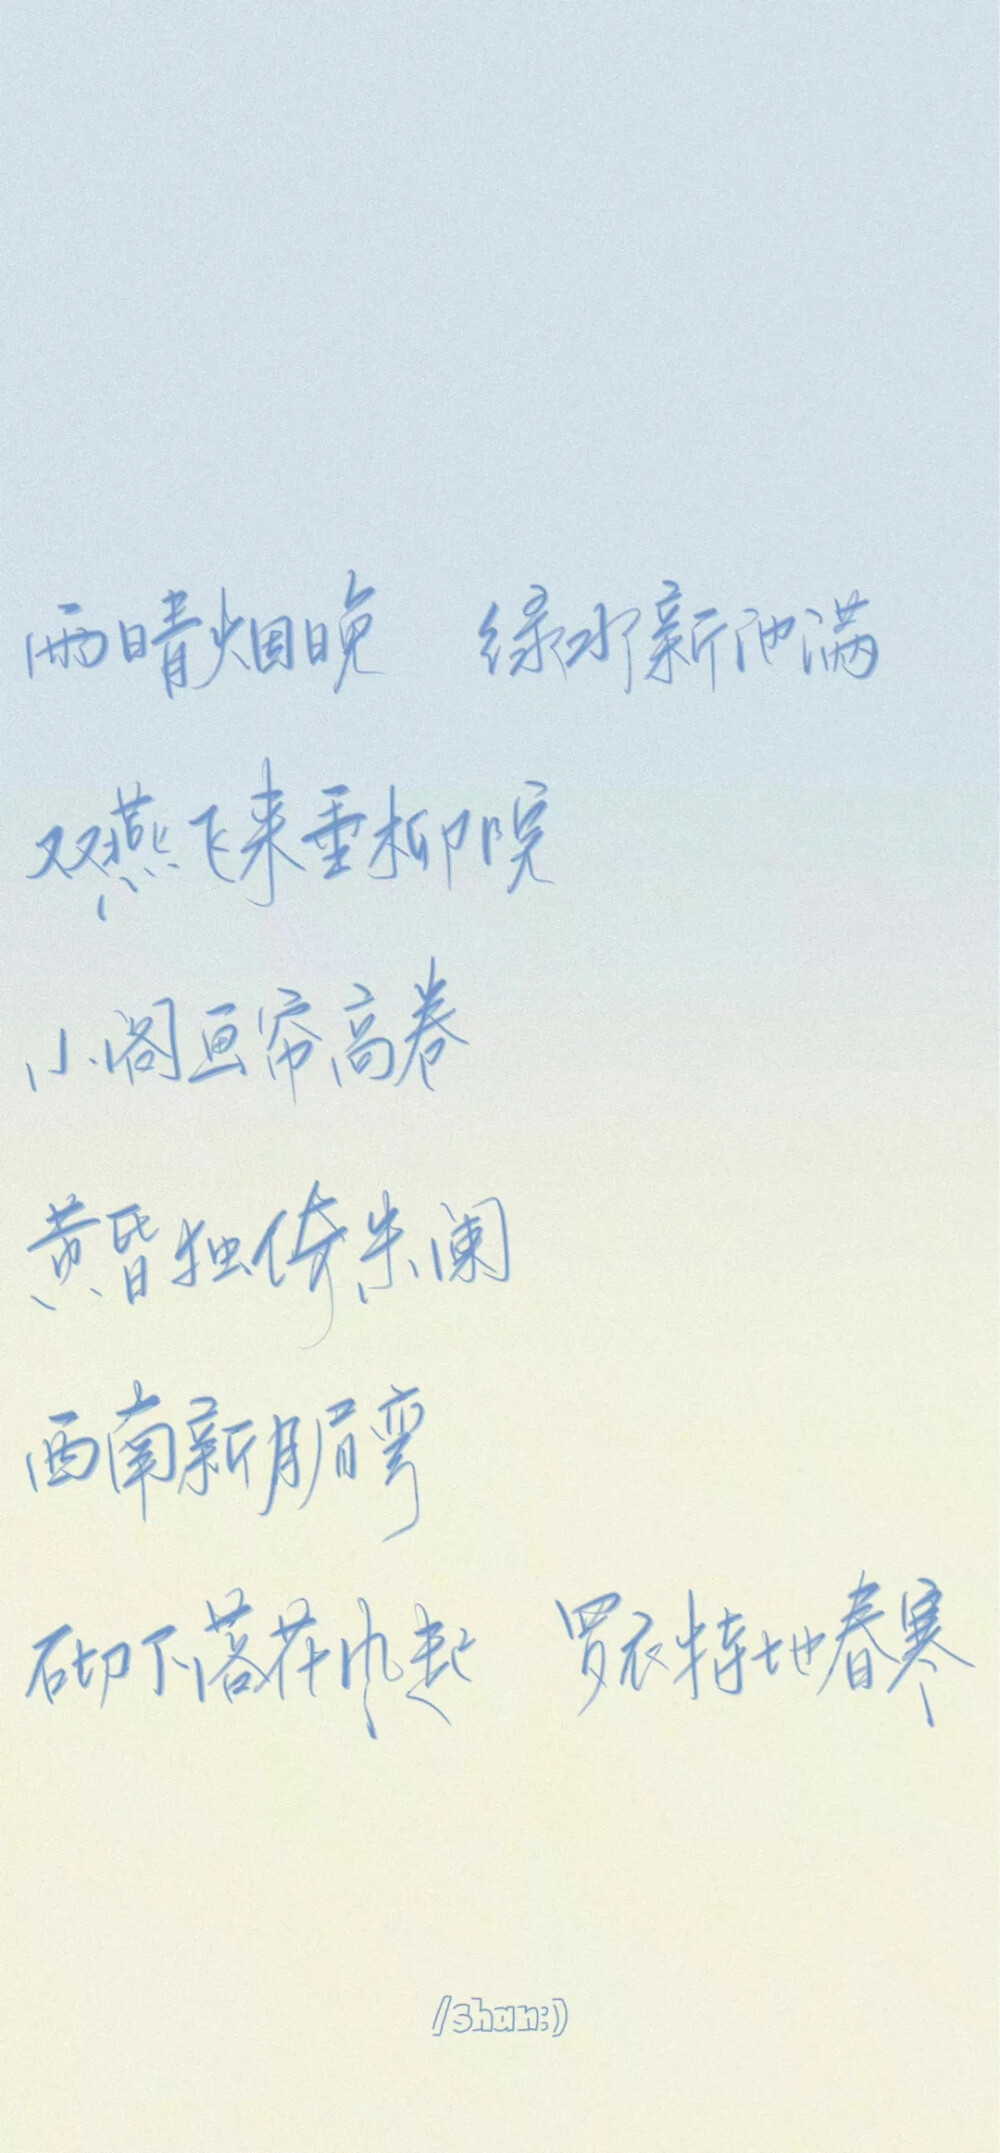 雨晴烟晚 绿水新池满
双燕飞来垂柳院
小阁画帘高卷
黄昏独倚朱阑
西南新月眉弯
砌下落花风起 罗衣特地春寒
/shan:)